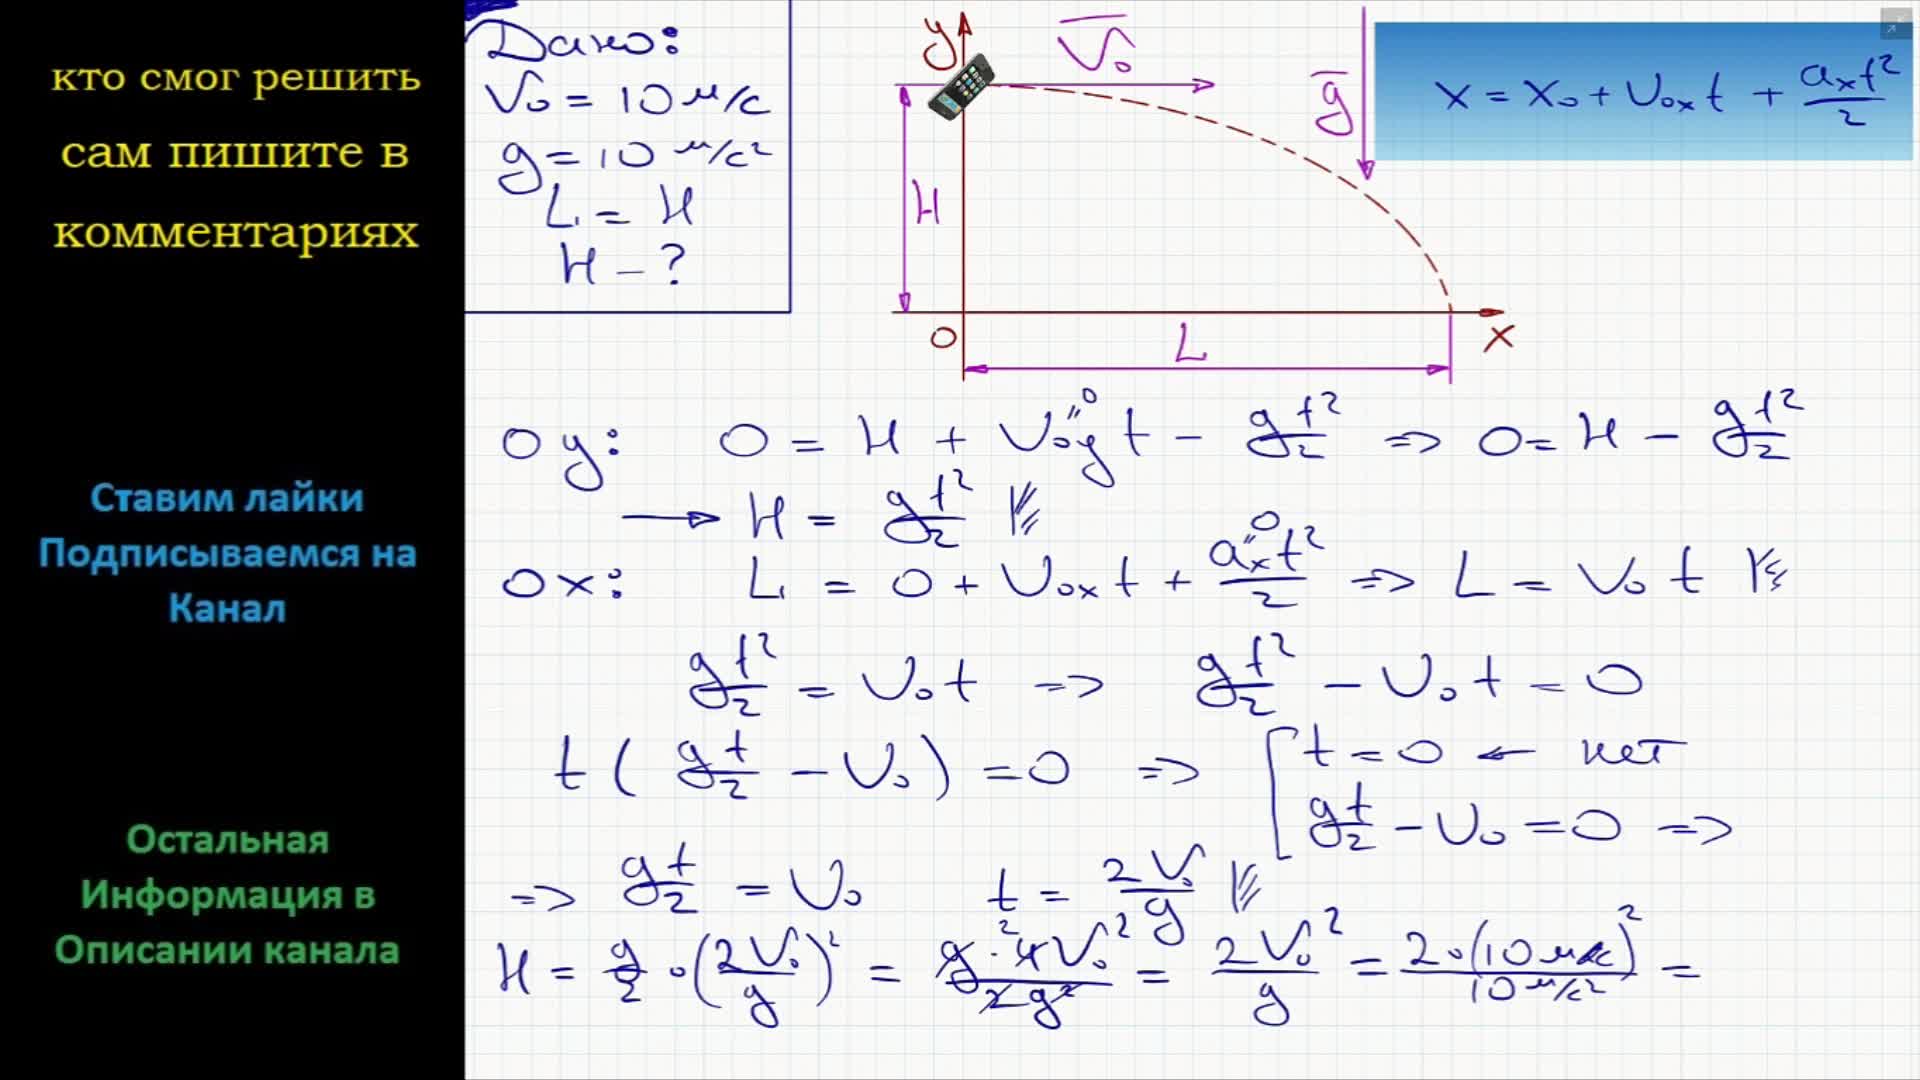 кто смог решить
сам пишите в
комментариях
Ставим лайки
Подписываемся на
Канал
Остальная
Информация в
Описании канала
Дано:
V₀ = 10 м/с
g = 10 м/с²
L = H
H – ?
y
V₀
g
H
0
L
x
x = x₀ + V₀ₓt + aₓt²/2
0y: 0 = H + V₀yt − gt²/2 => 0 = H − gt²/2
0
→ H = gt²/2
0x: L = 0 + V₀ₓt + aₓt²/2 => L = V₀t
0
gt²/2 = V₀t => gt²/2 − V₀t = 0
t(gt/2 − V₀) = 0 => [ t = 0 ← нет
gt/2 − V₀ = 0 =>
=> gt/2 = V₀ t = 2V₀/g
H = g/2 · (2V₀/g)² = g·4V₀²/2g² = 2V₀²/g = 2·(10 м/с)²/10 м/с² =
2